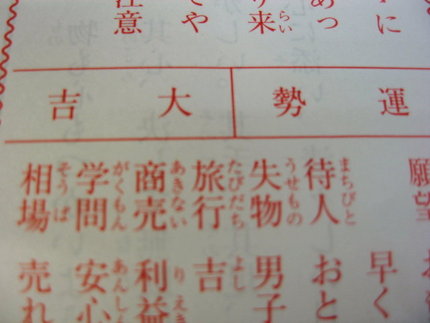 に
あっ
り来
らい
てや
注意
運勢
大吉
願望
早く
待人 おと
まちびと
失物 男子
うせもの
旅行 吉
たびだち よし
商売 利益
あきない りえき
学問 安心
がくもん あんしん
相場 売れ
そうば